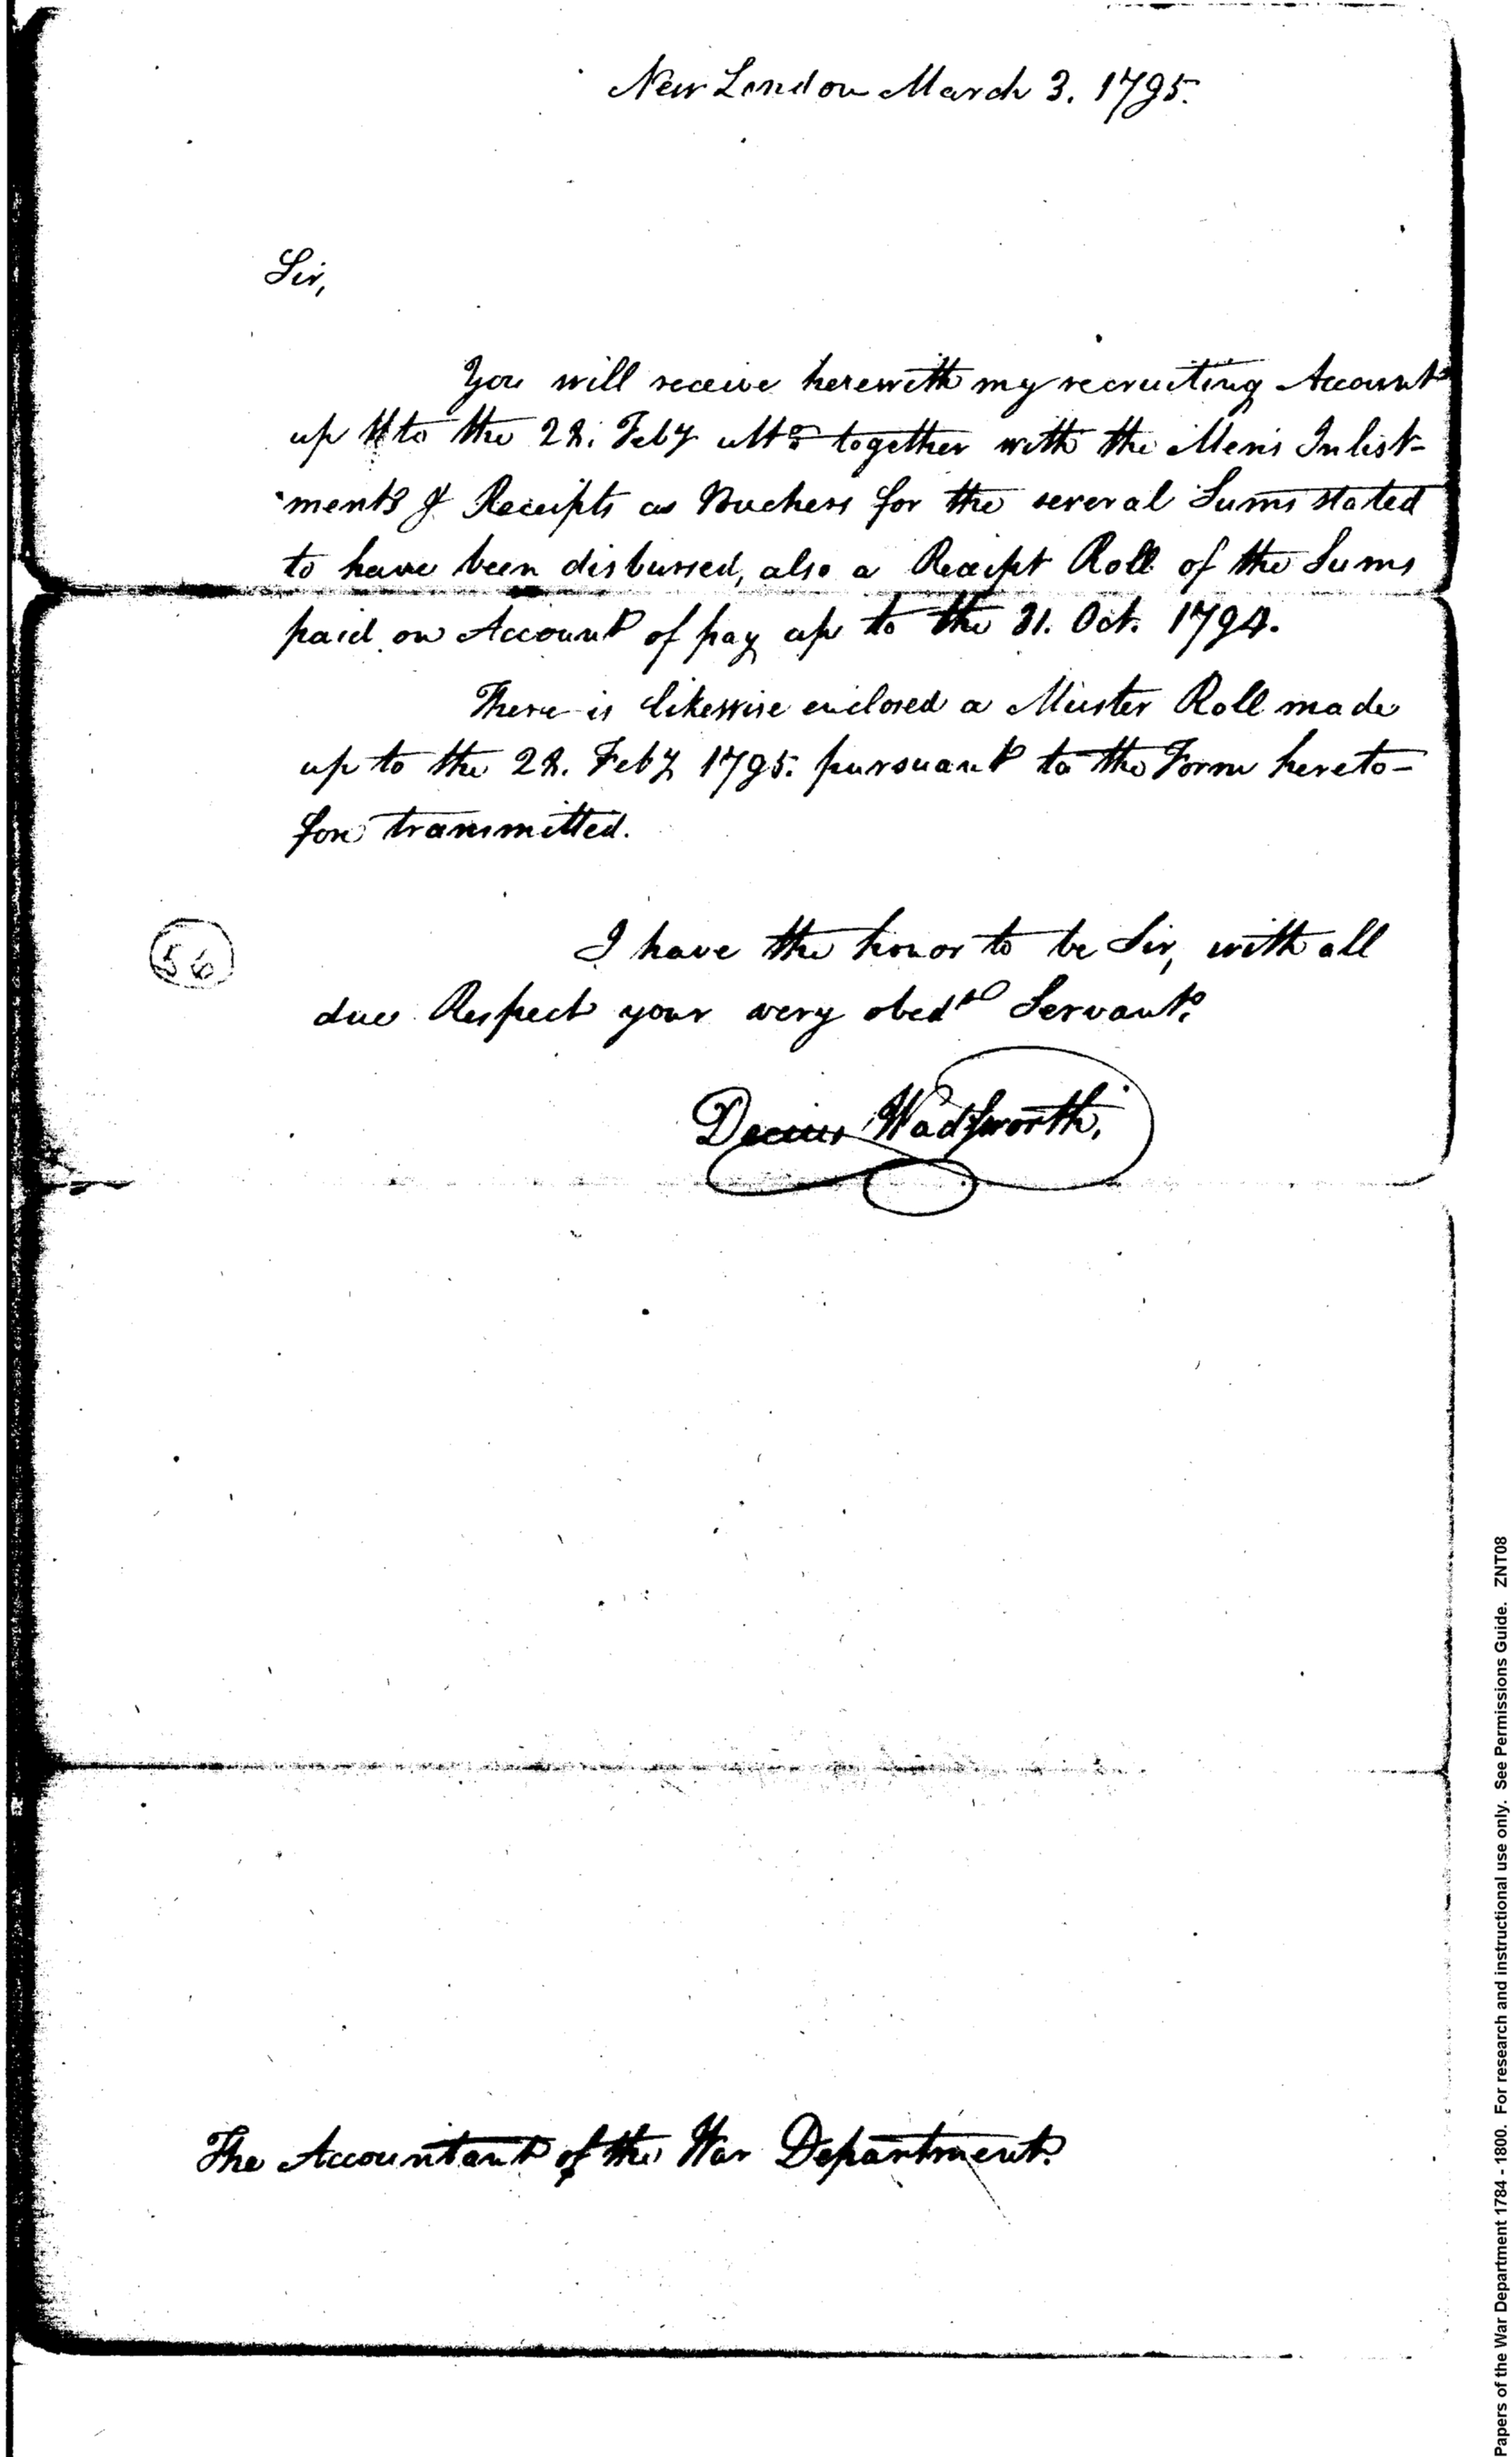 New London March 3. 1795.
Sir,
You will receive herewith my recruiting Account
up to the 28. Feby ulto. together with the Men's Inlist-
ments & Receipts as Vouchers for the several Sums stated
to have been disbursed, also a Receipt Roll of the Sums
paid on Account of pay up to the 31. Oct. 1794.
There is likewise enclosed a Muster Roll made
up to the 28. Feby 1795. pursuant to the Form hereto-
fore transmitted.
56
I have the honor to be Sir, with all
due Respect your very obedt Servant.
Decius Wadsworth.
The Accountant of the War Department.
Papers of the War Department 1784 - 1800. For research and instructional use only. See Permissions Guide. ZNT08